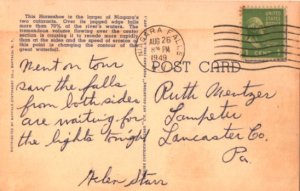 This Horseshoe is the larger of Niagara's
two cataracts. Over its jagged edge falls
more than 70% of the river's waters. The
tremendous volume flowing over the center
section is causing it to recede more rapidly
than at the sides and the speed of erosion of
this point is changing the contour of the
great waterfall.
NIAGARA FALLS
AUG 26
PM
1949
POST CARD
Went on tour
saw the falls
from both sides
are waiting for
the lights tonight
Helen Starr
Ruth Mentzer
Lampeter
Lancaster Co.
Pa.